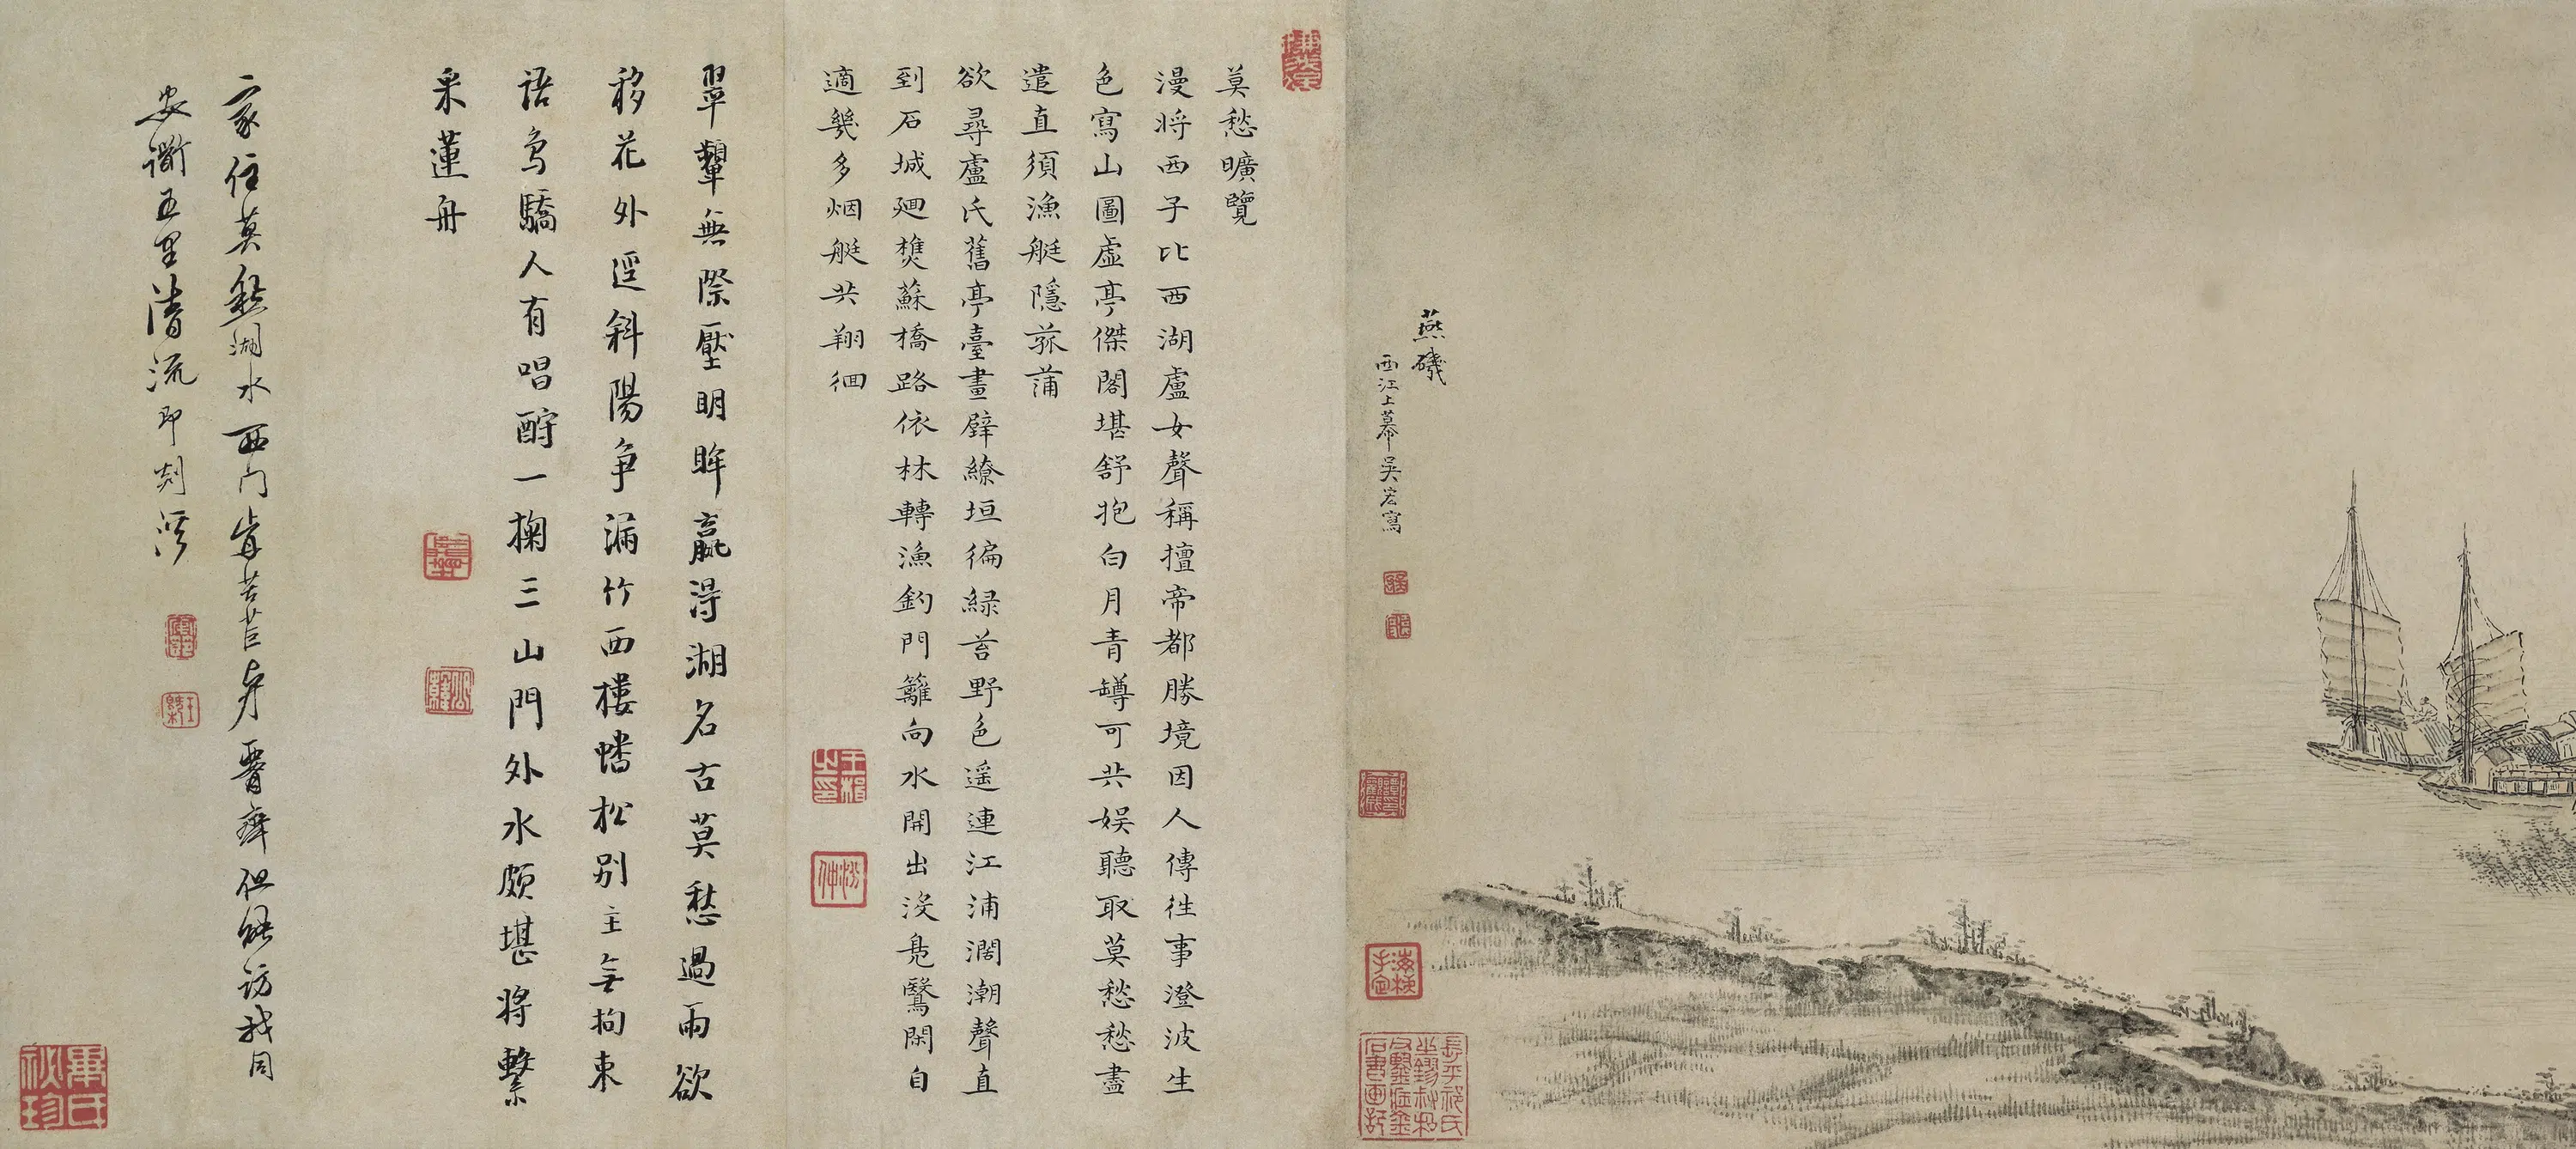 燕磯
西江上幕吳宏寫
莫愁曠覽
漫將西子比西湖盧女聲稱擅帝都勝境因人傳徃事澄波生
色寫山圖虛亭傑閣堪舒抱白月青罇可共娱聽取莫愁愁盡
遣直須漁艇隱菰蒲
欲尋盧氏舊亭臺畫壁繚垣徧緑苔野色遥連江浦濶潮聲直
到石城廻樵蘇橋路依林轉漁釣門籬向水開出沒鳧鷖閑自
適幾多烟艇共翔徊
王楫之印
汾仲
翠顰無際壓明眸贏得湖名古莫愁過雨欲
移花外逕斜陽爭漏竹西樓幡松別主無拘束
語鳥驕人有唱酧一掬三山門外水頗堪將繫
采蓮舟
家住莫愁湖水西门齋但能訪我同
五里清流即剡溪
畢氏秘珍